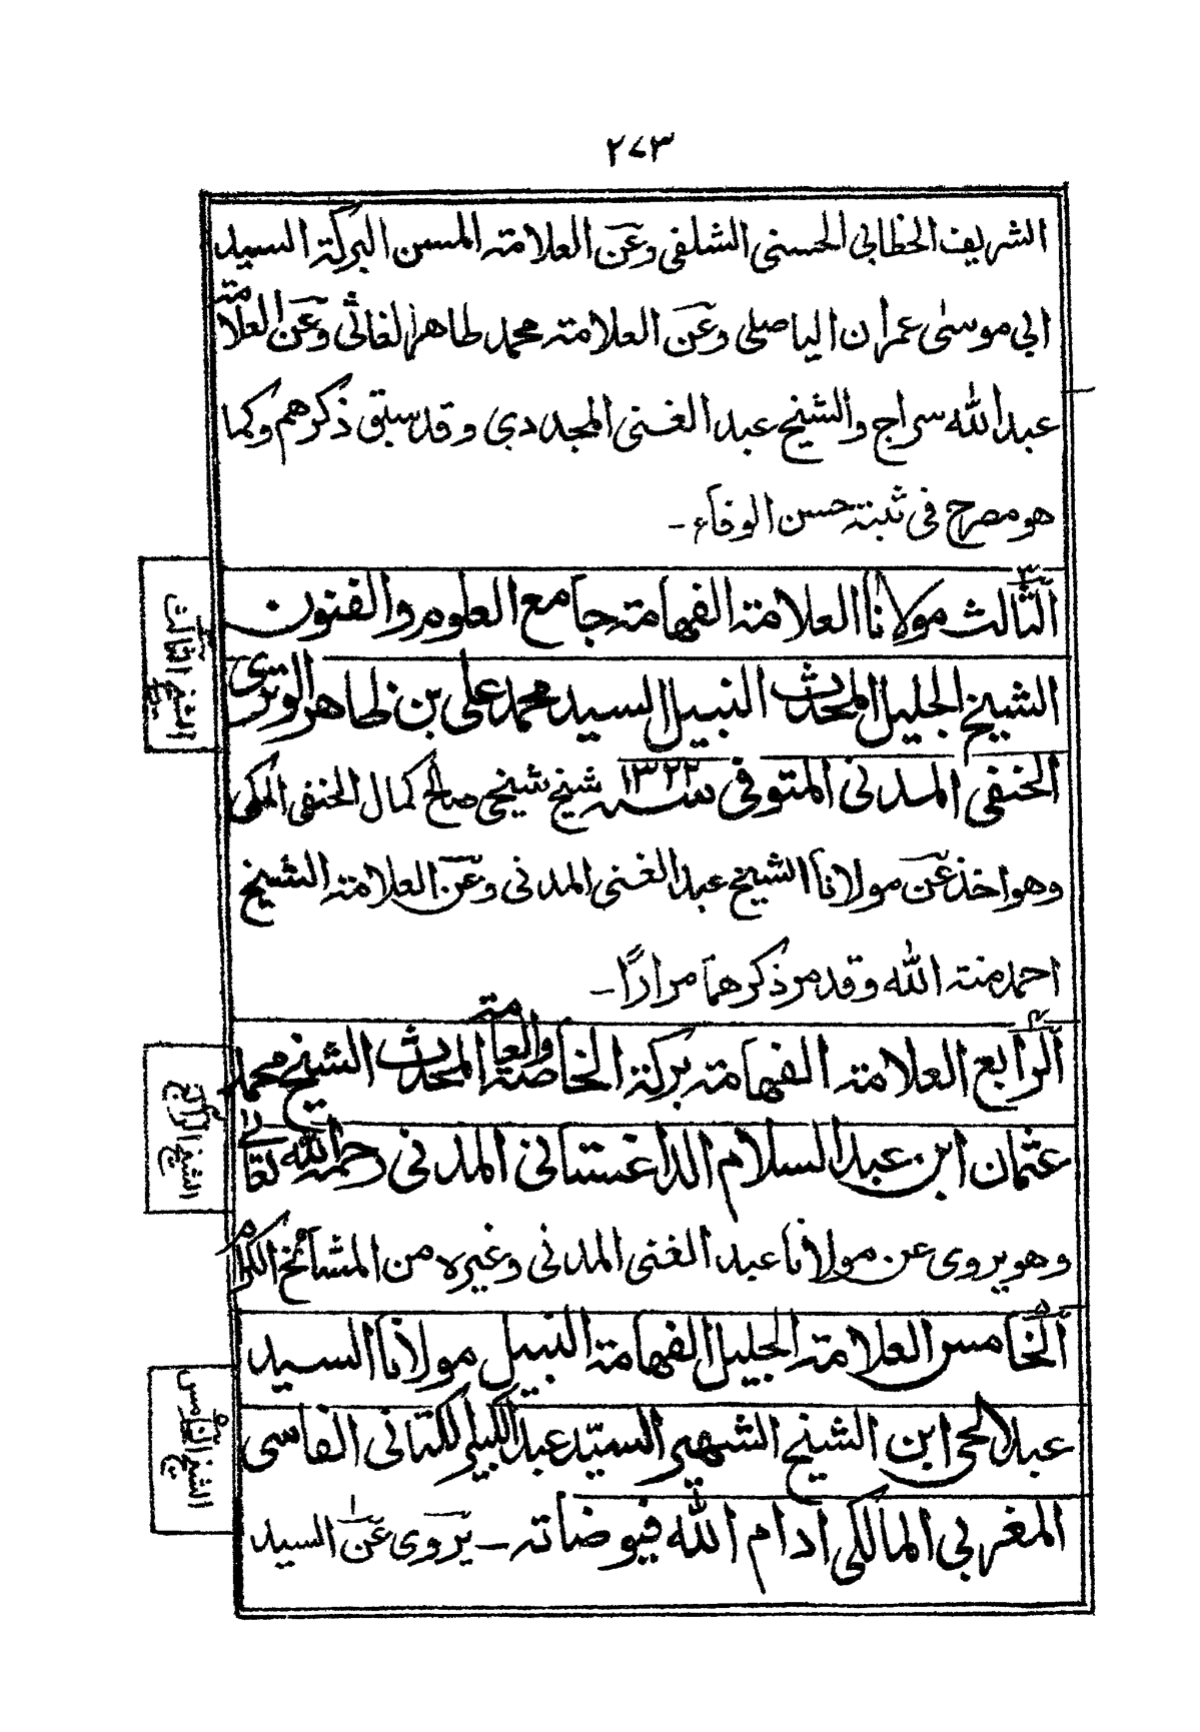 ٢٧٣
الشريف الخطابي الحسني الشلفي وعن العلامته المسن البركة السيد
ابي موسىٰ عمران الياصلي وعن العلامته محمد طاهر الغاتي وعن العلامته
عبد الله سراج والشيخ عبد الغني المجددي وقد سبق ذكرهم وكما
هو مصرح في ثبته حسن الوفاء -
الثالث مولانا العلامته الفهامته جامع العلوم والفنون
الشيخ الجليل المحدث النبيل السيد محمد علي بن ظاهر الوتري
الحنفي المدني المتوفى سنه ١٣٢٢ شيخ شيخي صالح كمال الحنفي المكي
وهو اخذ عن مولانا الشيخ عبد الغني المدني وعن العلامته الشيخ
احمد منته الله وقد مر ذكرهما مرارًا -
الرابع العلامته الفهامته بركة الخاصته والعامته المحدث الشيخ محمد
عثمان ابن عبد السلام الداغستاني المدني رحمه الله تعالى
وهو يروى عن مولانا عبد الغني المدني وغيره من المشائخ الكرام
الخامس العلامته الجليل الفهامته النبيل مولانا السيد
عبد الحي ابن الشيخ الشهير السيّد عبد الكبير الكتاني الفاسي
المغربي المالكي ادام الله فيوضاته - يروى عن السيد
الشيخ الثالث
الشيخ الرابع
الشيخ الخامس